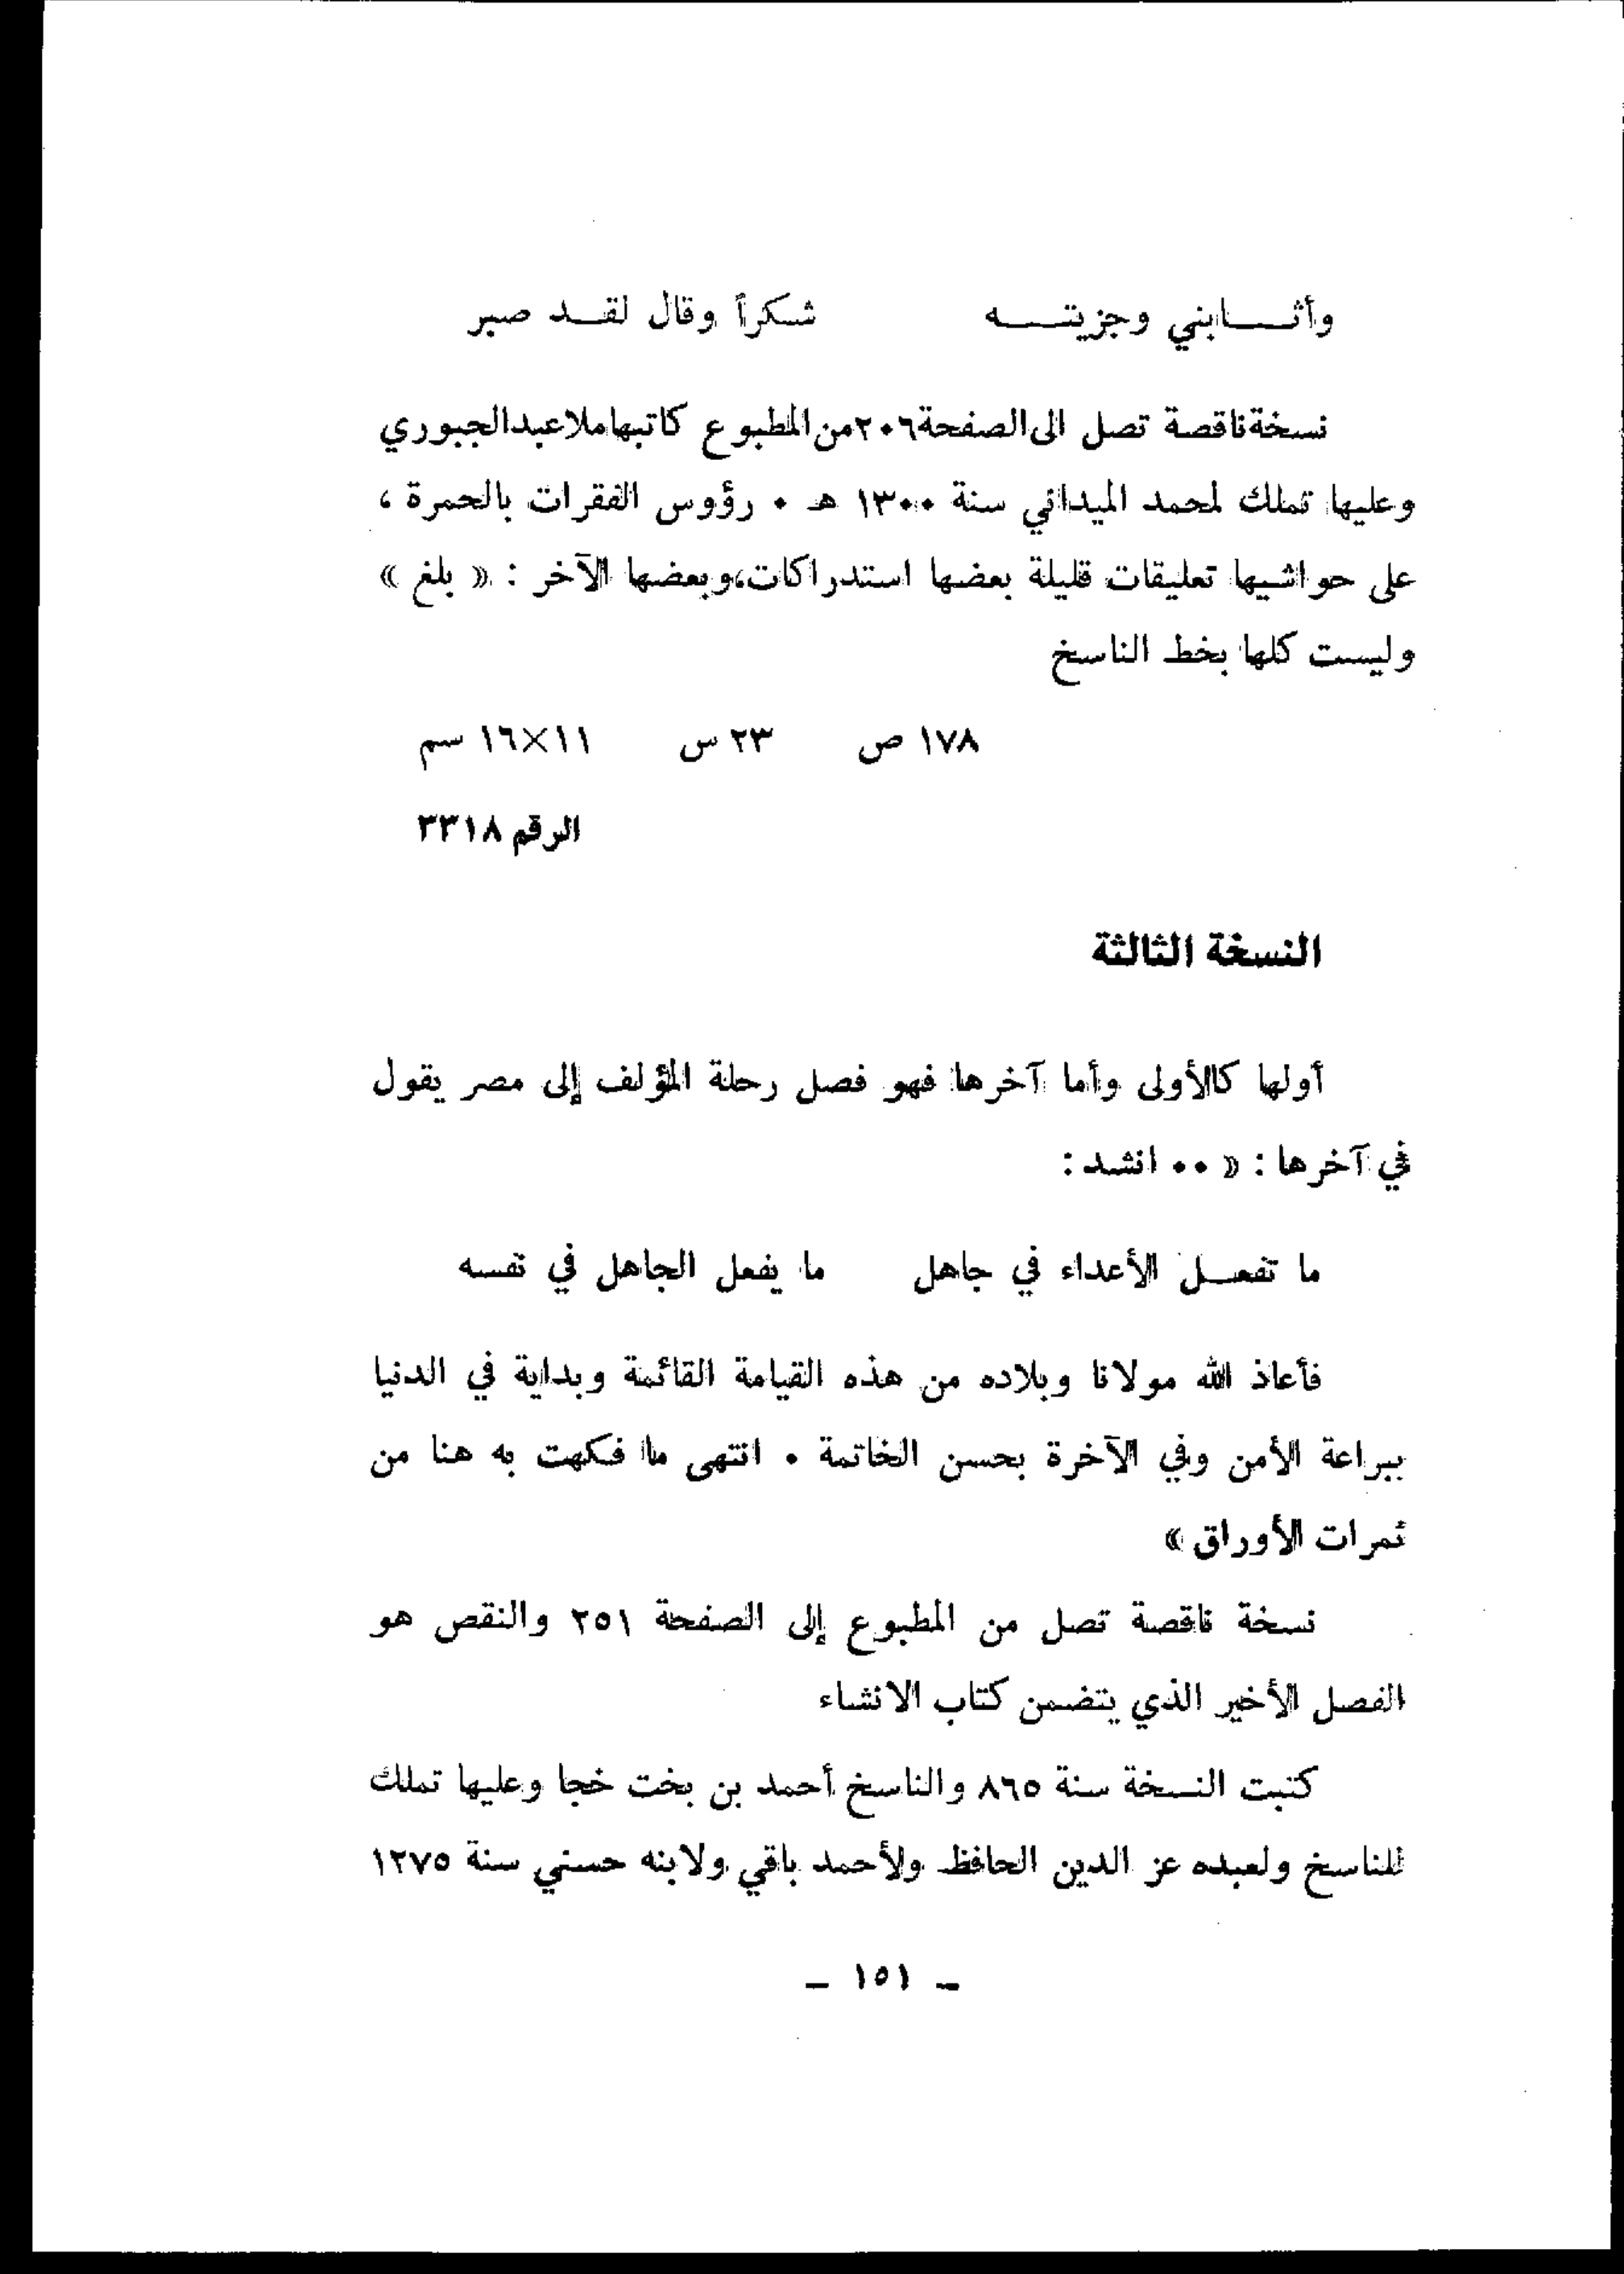 وأثـــابني وجزيتـــه شكراً وقال لقـد صبر
نسخة ناقصة تصل الى الصفحة ٢٠٦ من المطبوع كاتبها ملا عبد الجبوري
وعليها تملك لمحمد الميداني سنة ١٣٠٠ هـ . رؤوس الفقرات بالحمرة ،
على حواشيها تعليقات قليلة بعضها استدراكات، وبعضها الآخر : « بلغ »
وليست كلها بخط الناسخ
١٧٨ ص ٢٣ س ١١×١٦ سم
الرقم ٣٣١٨
النسخة الثالثة
أولها كالأولى وأما آخرها فهو فصل رحلة المؤلف إلى مصر يقول
في آخرها : « .. انشد :
ما تفعـل الأعداء في جاهل ما يفعل الجاهل في نفسه
فأعاذ الله مولانا وبلاده من هذه القيامة القائمة وبداية في الدنيا
ببراعة الأمن وفي الآخرة بحسن الخاتمة . انتهى ما فكهت به هنا من
ثمرات الأوراق »
نسخة ناقصة تصل من المطبوع إلى الصفحة ٢٥١ والنقص هو
الفصل الأخير الذي يتضمن كتاب الانشاء
كتبت النسخة سنة ٨٦٥ والناسخ أحمد بن بخت خجا وعليها تملك
للناسخ ولعبده عز الدين الحافظ ولأحمد باقي ولابنه حسني سنة ١٢٧٥
– ١٥١ –